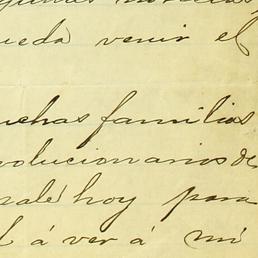 ueda venir el
uchas familias
volucionarios de
sale hoy para
á ver á mi